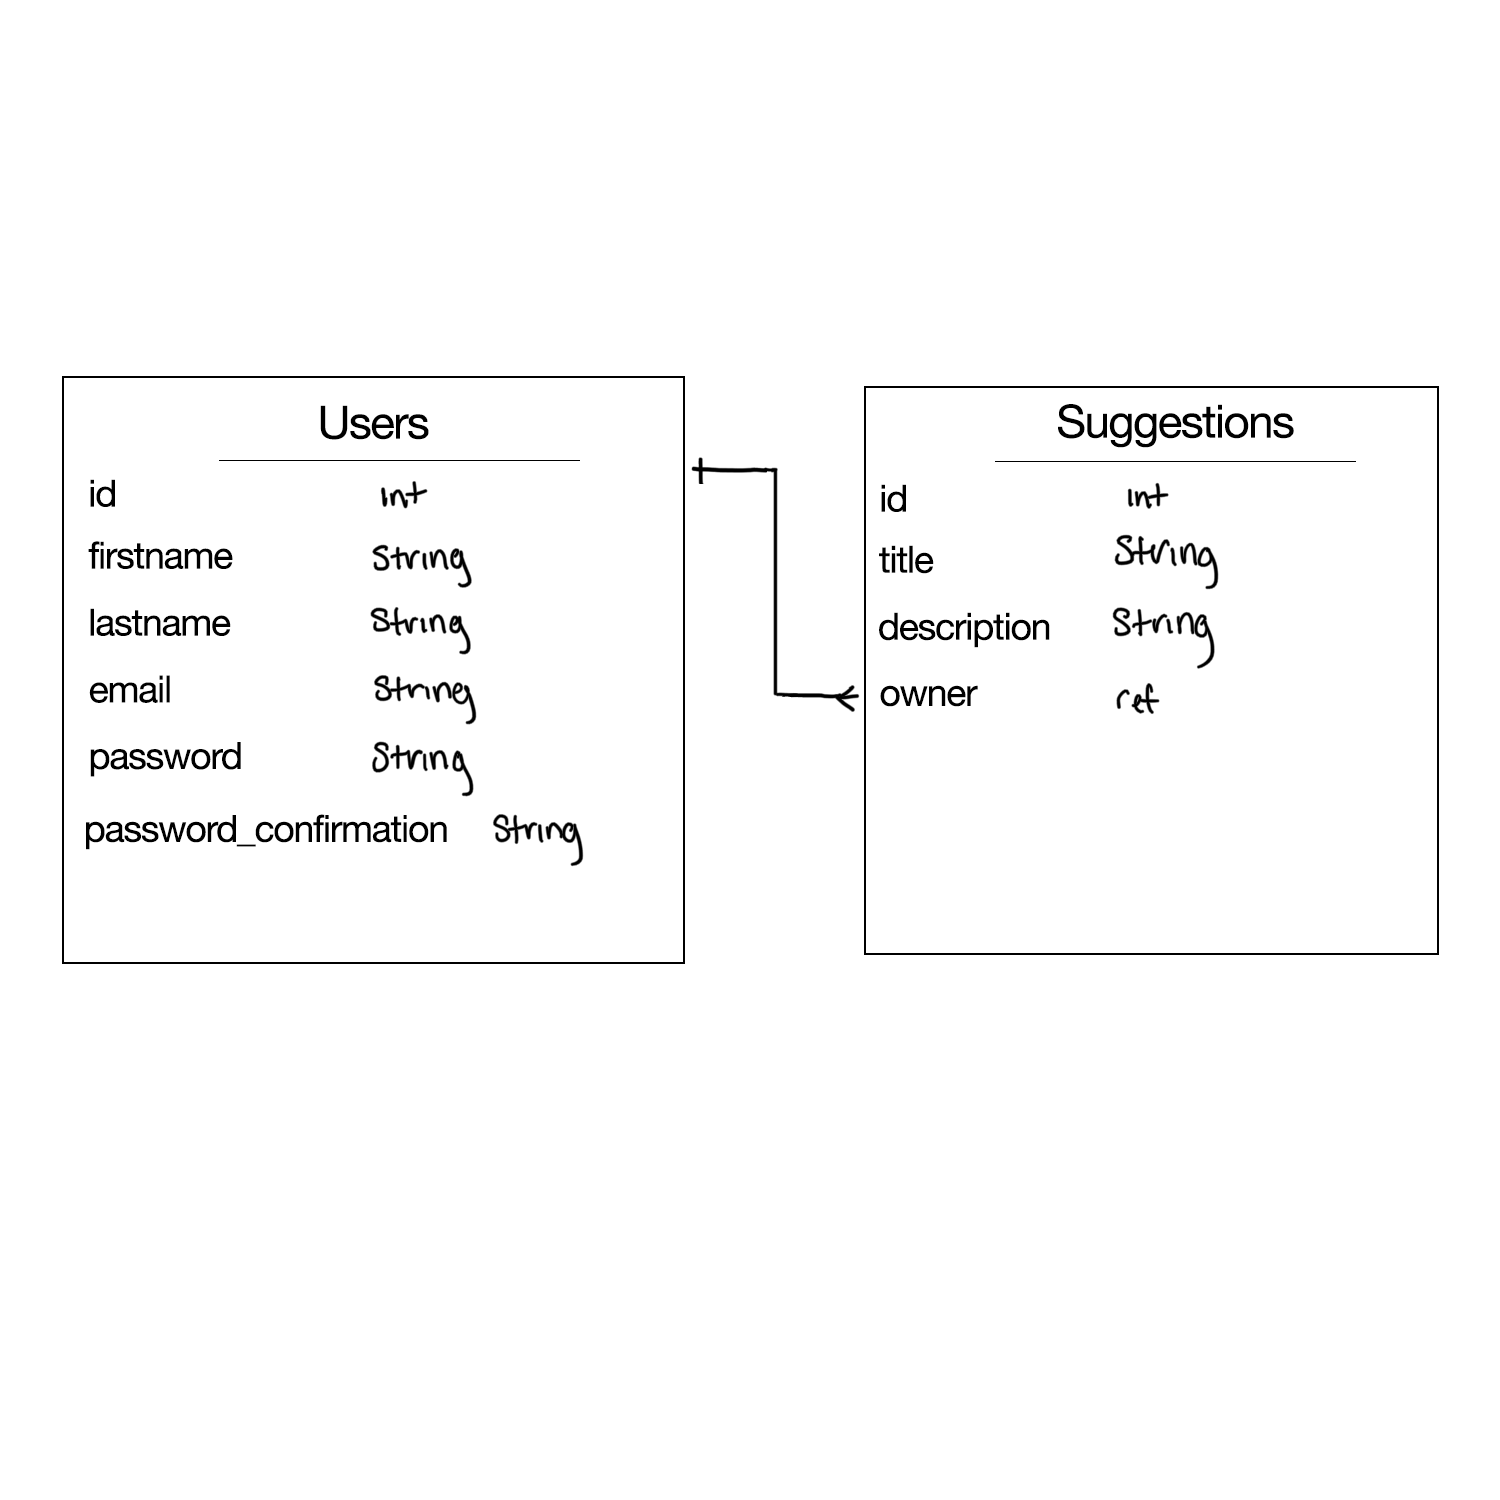 Users
id int
firstname String
lastname String
email String
password String
password_confirmation String
Suggestions
id int
title String
description String
owner ref